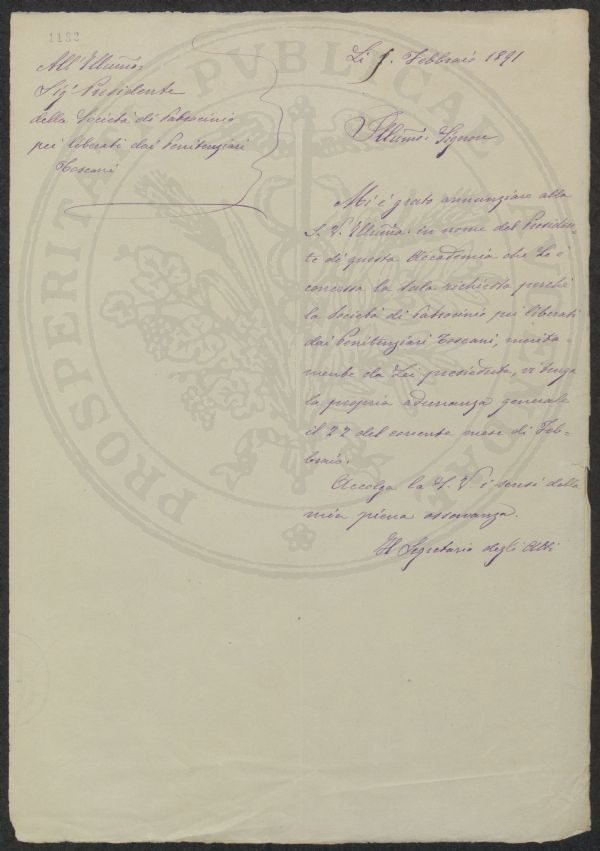 1182
All'Illumo.
Sigr. Presidente
della Società di Patrocinio
pei liberati dai Penitenziari
Toscani
Li Febbraio 1891
Illumo. Signore
Mi è grato annunziare alla
S. V. Illuma. in nome del Presiden-
te di questa Accademia che Le è
concessa la sala richiesta perchè
la Società di Patrocinio pei liberati
dai Penitenziari Toscani, merita-
mente da Lei presieduta, vi tenga
la propria adunanza generale
il 22 del corrente mese di Feb-
braio.
Accolga la S. V. i sensi della
mia piena osservanza.
Il Segretario degli Atti
PROSPERITATI PVBLICAE